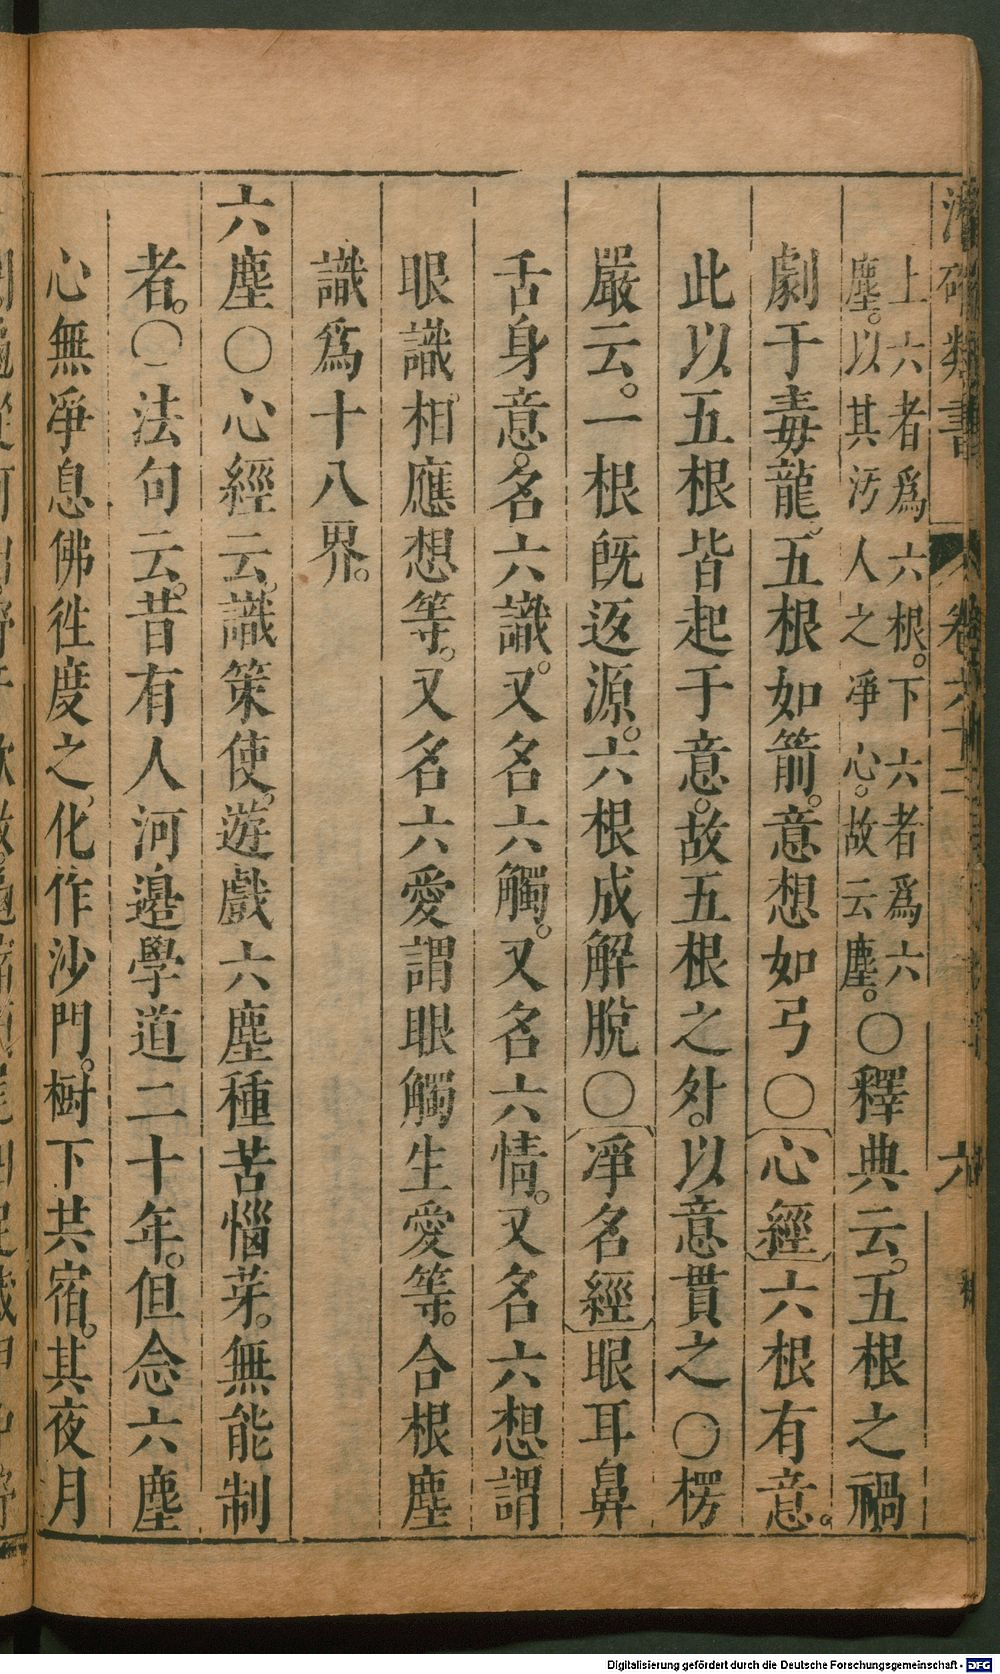 潛確類書 卷六十二 六
上六者爲六根。下六者爲六
塵。以其汚人之淨心。故云塵。
〇釋典云。五根之禍
劇于毒龍。五根如箭。意想如弓〇心經六根有意。
此以五根皆起于意。故五根之外。以意貫之〇楞
嚴云。一根旣返源。六根成解脫〇凈名經眼耳鼻
舌身意。名六識。又名六觸。又名六情。又名六想謂
眼識相應想等。又名六愛謂眼觸生愛等。合根塵
識爲十八界。
六塵〇心經云。識策使。遊戲六塵種苦惱芽。無能制
者。〇法句云。昔有人河邊學道二十年。但念六塵
心無凈息佛徃度之。化作沙門。樹下共宿。其夜月
Digitalisierung gefördert durch die Deutsche Forschungsgemeinschaft - DFG